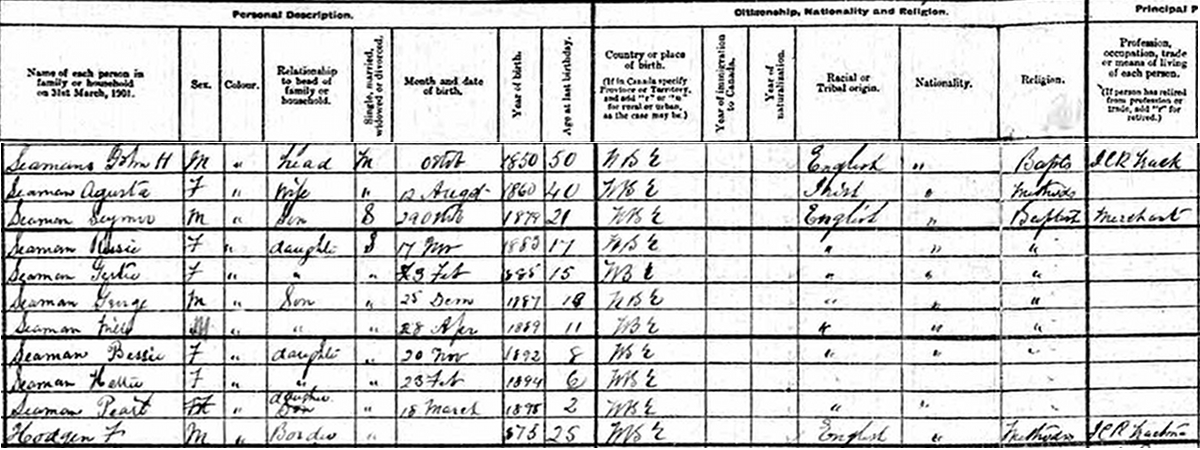 Personal Description.
Citizenship, Nationality and Religion.
Principal P
Name of each person in
family or household
on 31st March, 1901.
Sex.
Colour.
Relationship
to head of
family or
household.
Single, married,
widowed or divorced.
Month and date
of birth.
Year of birth.
Age at last birthday.
Country or place
of birth.
(If in Canada specify
Province or Territory,
and add "r" or "u"
for rural or urban,
as the case may be.)
Year of immigration
to Canada.
Year of
naturalization.
Racial or
Tribal origin.
Nationality.
Religion.
Profession,
occupation, trade
or means of living
of each person.
(If person has retired
from profession or
trade, add "r" for
retired.)
Seamans John H M " head M 1850 50 English " ICR
Seaman Agusta F " Wife " 12 1860 40 "
Seaman M " Son S 29 1879 21 English " Baptist Merchant
Seaman F " daughter S 17 Nov 1883 17 " " "
Seaman Gertie F " " " 23 Feb 885 15 " " "
Seaman George M " Son " 25 1887 " " "
Seaman " " " 28 Apr 1889 11 " " "
Seaman Bessie F " daughter " 20 Nov 1892 8 " " "
Seaman F " " " 23 Feb 1894 6
Seaman Pearl " daughter " 18 March 2 " "
Hodgen F M " Border " 875 25 English " ICR